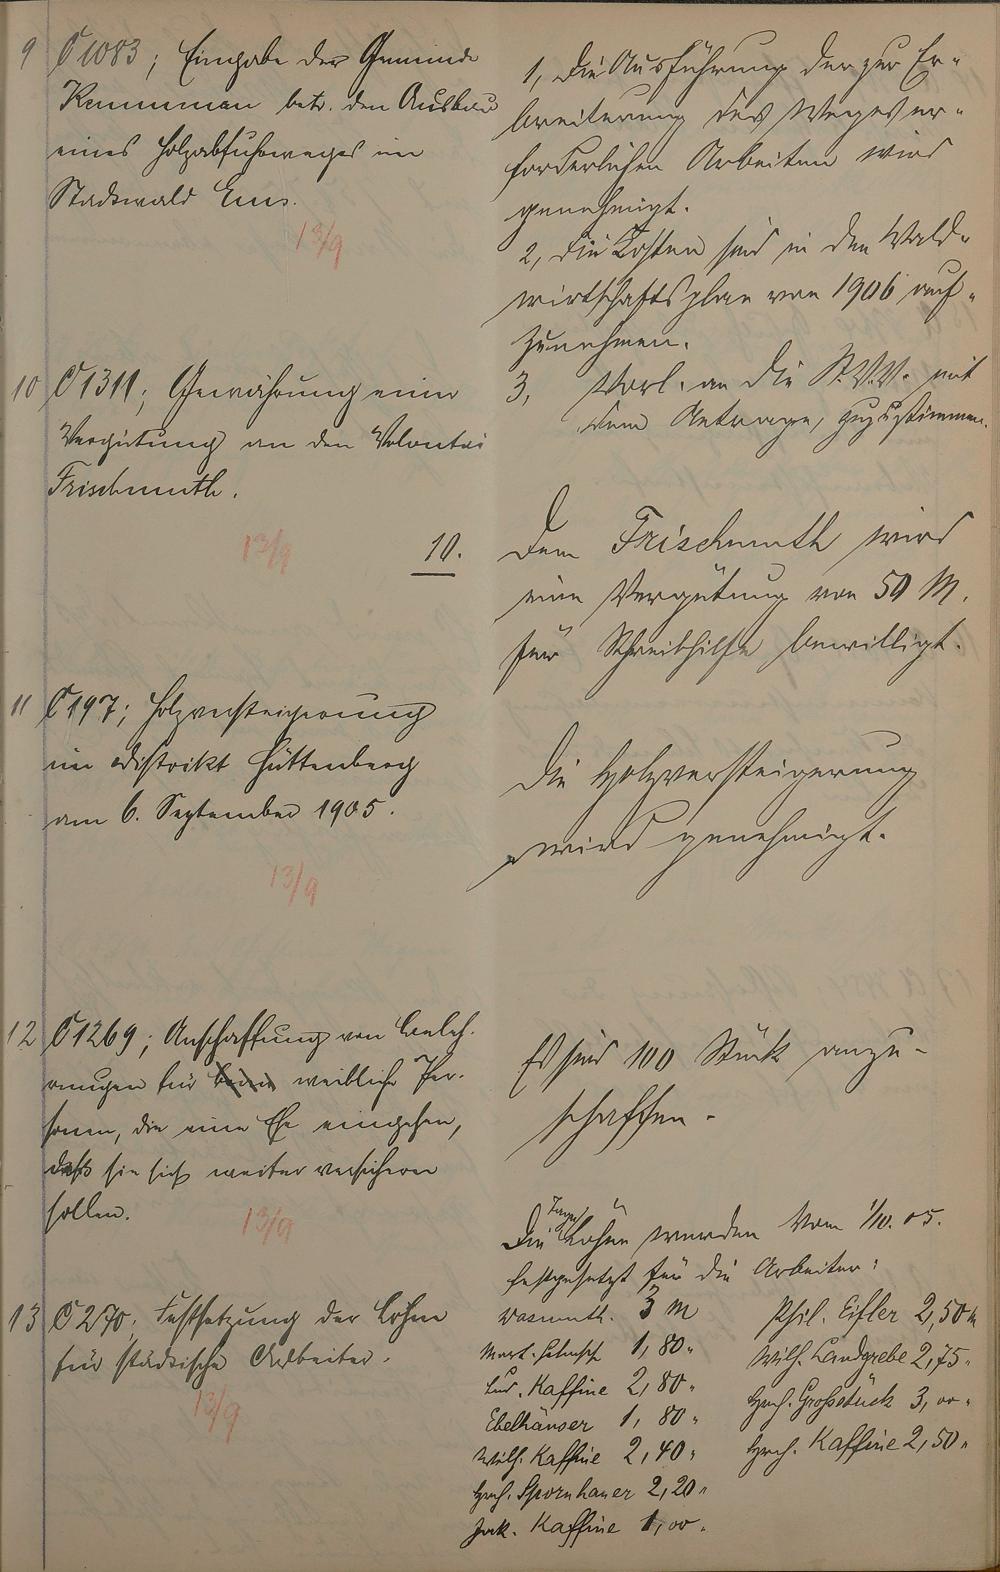 9 C 1083; Eingabe der Gemeinde
Kemmenau betr. den Ausbau
eines Holzabfuhrweges im
Stadtwald Ems.
13/9
1, Die Ausführung der zur Er-
breiterung des Weges er-
forderlichen Arbeiten wird
genehmigt.
2, Die Kosten sind in den Wald-
wirtschaftsplan von 1906 auf-
zunehmen.
3, Vorl. an die St.V.V. mit
dem Antrage, zuzustimmen.
10 C 1311; Gewährung einer
Vergütung an den Volontär
Frischmuth.
13/9
10.
Dem Frischmuth wird
eine Vergütung von 50 M.
für Schreibhilfe bewilligt.
11 C 197; Holzversteigerung
im Distrikt Hüttenberg
am 6. September 1905.
13/9
Die Holzversteigerung
wird genehmigt.
12 C 1269; Anschaffung von Beleh-
rungen für weibliche Per-
sonen, die eine Ehe eingehen,
daß sie sich weiter versichern
sollen.
13/9
Es sind 100 Stück anzu-
schaffen.
13 C 270; Festsetzung der Löhne
für städtische Arbeiter.
13/9
Die Tage Löhne werden vom 1/10. 05.
festgesetzt für die Arbeiter:
3 M
Phil. Eifler 2,50 M
Mart. 1,80 "
Wilh. Landgrebe 2,75 "
Lud. Kaffine 2,80 "
Hch. Großstück 3,00 "
Ebelhäuser 1,80 "
Hch. Kaffine 2,50 "
Wilh. Kaffine 2,40 "
Hch. Spornhauer 2,20 "
Jak. Kaffine 1,00 "